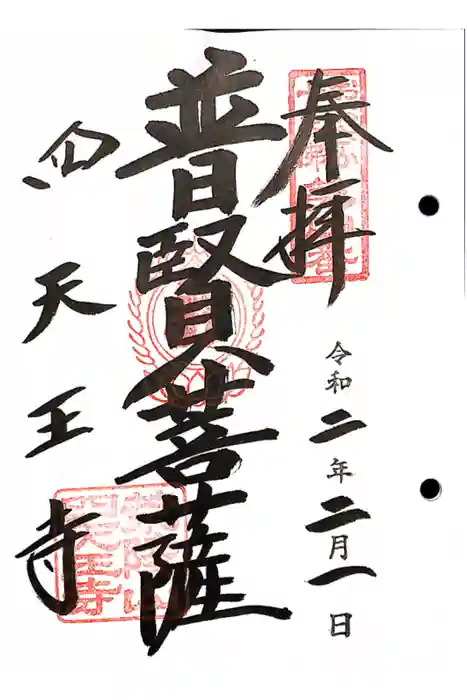 奉拝
令和二年二月一日
普賢菩薩
四天王寺